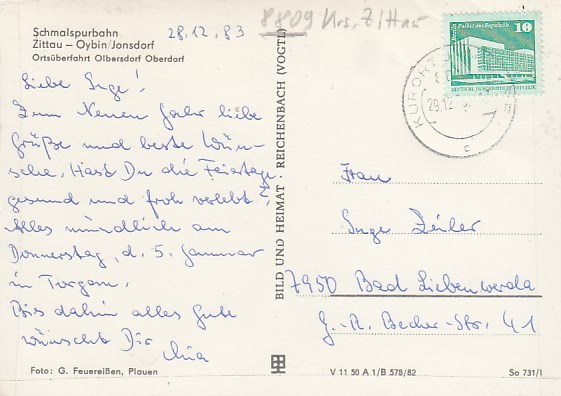 28.12.83
8809 Krs. Z/
Schmalspurbahn
Zittau – Oybin/Jonsdorf
Ortsüberfahrt Olbersdorf Oberdorf
Liebe Inge!
Zum Neuen Jahr liebe
Grüße und beste Wün-
sche. Hast Du die Feiertage
gesund und froh verlebt?
Alles mündlich am
Donnerstag, d. 5. Januar
in Torgau.
Bis dahin alles Gute
wünscht Dir
Foto: G. Feuereißen, Plauen
BILD UND HEIMAT · REICHENBACH (VOGTL)
Palast der Republik
10
DEUTSCHE DEMOKRATISCHE REPUBLIK
KURORT
29.12
c
Frau
Inge Zeiler
7950 Bad Liebenwerda
J.-R. Becher-Str. 41
V 11 50 A 1/B 578/82
So 731/1